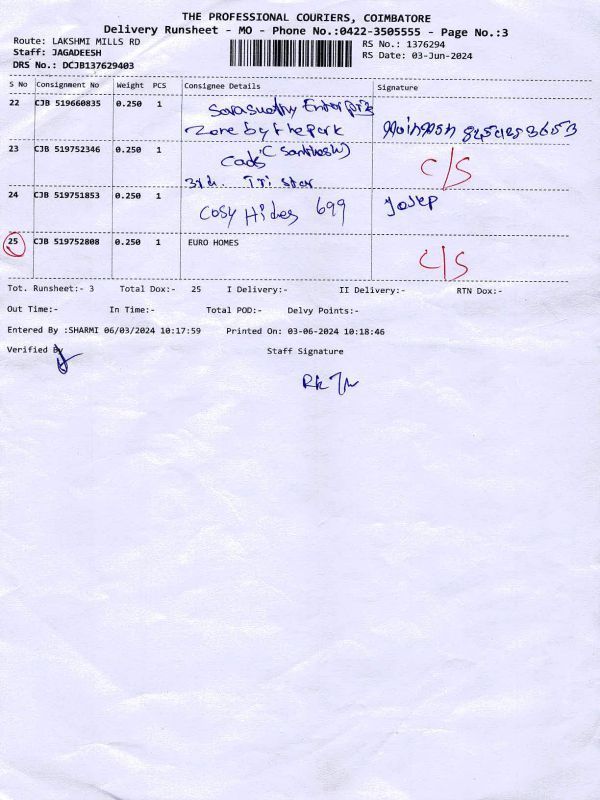 THE PROFESSIONAL COURIERS, COIMBATORE
Delivery Runsheet - MO - Phone No.:0422-3505555 - Page No.:3
Route: LAKSHMI MILLS RD
Staff: JAGADEESH
DRS No.: DCJB137629403
RS No.: 1376294
RS Date: 03-Jun-2024
S No Consignment No Weight PCS Consignee Details Signature
22 CJB 519660835 0.250 1
Zone by the park
23 CJB 519752346 0.250 1
(Santhosh)
C/S
Tri Star
24 CJB 519751853 0.250 1
Cosy Hides 699
25 CJB 519752808 0.250 1 EURO HOMES
C/S
Tot. Runsheet:- 3 Total Dox:- 25 I Delivery:- II Delivery:- RTN Dox:-
Out Time:- In Time:- Total POD:- Delvy Points:-
Entered By :SHARMI 06/03/2024 10:17:59 Printed On: 03-06-2024 10:18:46
Verified By
Staff Signature